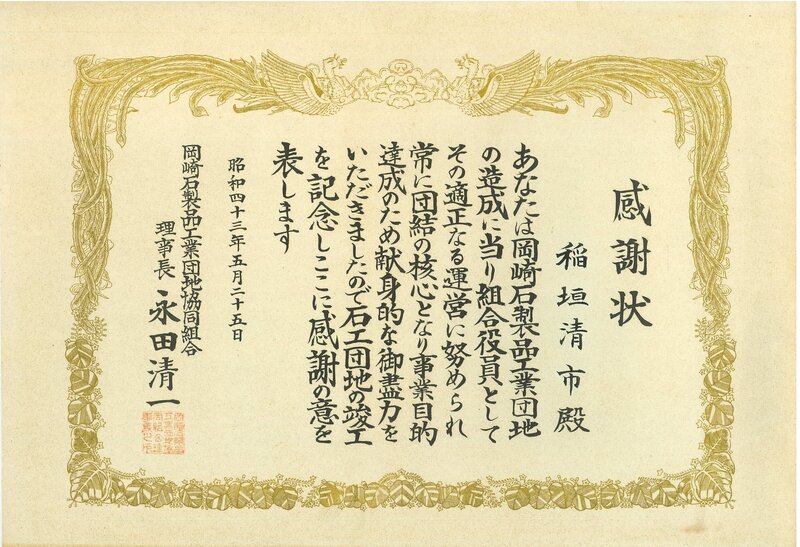 感謝状
稲垣清市殿
あなたは岡崎石製品工業団地
の造成に当り組合役員として
その適正なる運営に努められ
常に団結の核心となり事業目的
達成のため献身的な御盡力を
いただきましたので石工団地の竣工
を記念しここに感謝の意を
表します
昭和四十三年五月二十五日
岡崎石製品工業団地協同組合
理事長 永田清一